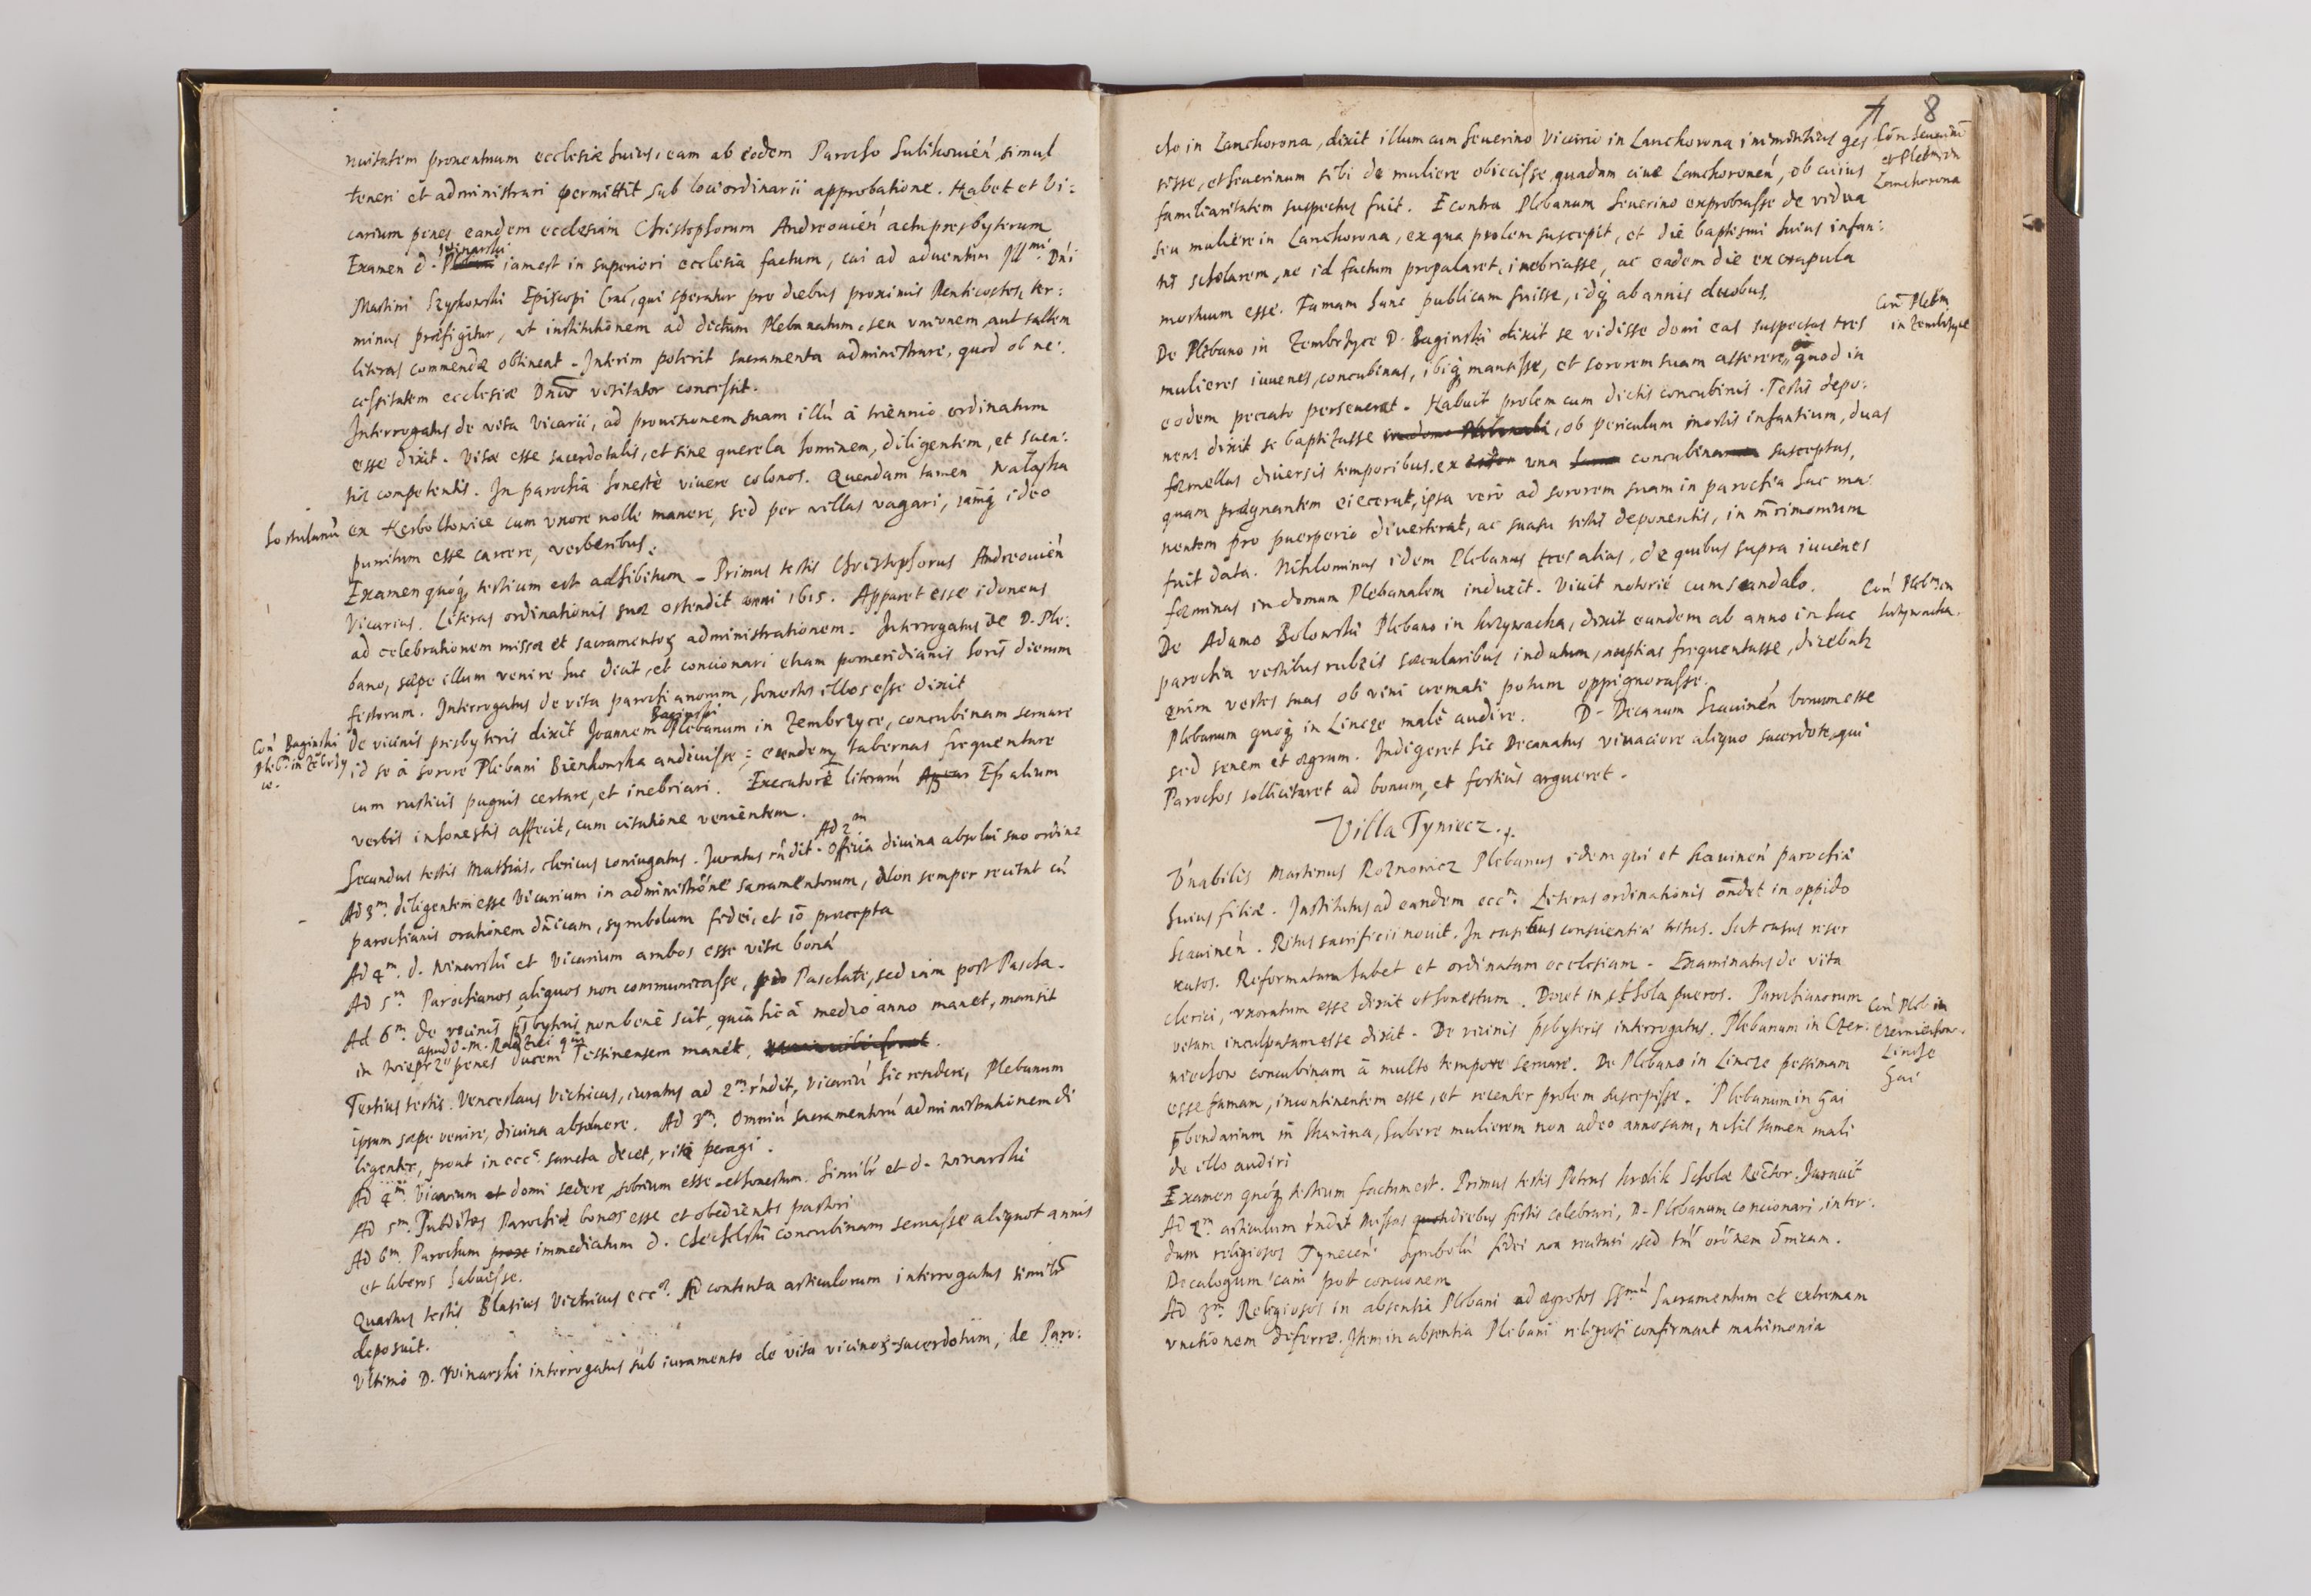 nuitatem prouentuum ecclesiæ huius, eam ab eodem Parocho Sulikouień simul
teneri et administrari permittit sub loci ordinarii approbatione. Habet et Vi:
carium penes eandem ecclesiam Christophorum Andreouień actu presbyterum
Winarski
Examen d. iam est in superiori ecclesia factum, cui ad aduentum Illmi Dni
Martini Szyskowski Episcopi Crac, qui speratur pro diebus proximis Penticostes, ter:
minus præfigitur, ut institutionem ad dictum Plebanatum, seu unionem aut saltem
literas commendæ obtineat. Interim poterit sacramenta administrare, quod ob ne:
cessitatem ecclesiæ Dnus visitator concessit.
Interrogatus de vita Vicarii, ad prouisionem suam illū à triennio ordinatum
esse dixit. Vitæ esse sacerdotalis, et sine querela hominem, diligentem, et scien:
tiæ competentis. In parochia honestè viuere colonos. Quendam tamen Wałaska
ex Herboltowice cum uxore nolle manere, sed per villas vagari, iamq ideo
punitum esse carcere, verberibus.
Examen quoq testium est adhibitum. Primus testis Christophorus Andreouień
Vicarius. Literas ordinationis suæ ostendit anni 1615. Apparet esse idoneus
ad celebrationem missæ et sacramentoꝝ administrationem. Interrogatus de D. Ple:
bano, sæpe illum venire huc dicit, et concionari etiam pomeridianis horis dierum
festorum. Interrogatus de vita parochianorum, honestos illos esse dixit
Baginski
Coń Baginski
Plebm in Zēbrzy
ce.
De vicinis presbyteris dixit Joannem Plebanum in Zembrzyce, concubinam seruare
id se à sorore Plebani Bienkowska audiuisse; eundemq tabernas frequentare
cum rusticis pugnis certare, et inebriari. Executorē literarū Epalium
verbis inhonestis affecit, cum citatione venientem.
Ad 2m
Secundus testis Mathias, clericus coniugatus. Juratus rńdit. Officia diuina absolui suo ordine
Ad 3m. diligentem esse Vicarium in administrōne sacramentorum, Non semper recitat cū
parochianis orationem dńicam, symbolum fidei, et 10 præcepta
Ad 4m. d. Winarski et Vicarium ambos esse vitæ bonæ
Ad 5m Parochianos aliquos non communicasse, pro Paschate, sed iam post Pascha.
Ad 6m. De vicinis psbyteris non benè scit, quia hic à medio anno manet, mansit
in Wieprz penes ducem Tessinensem manet,
Tertius testis. Venceslaus Victricus, iuratus ad 2m rńdit, Vicariū hic residere, Plebanum
ipsum sæpe venire, diuina absoluere. Ad 3m. Omniū sacramentorū administrationem di
ligenter, prout in eccā sancta decet, ritè peragi.
Ad 4m. Vicarium et domi sedere, sobrium esse et honestum. Similr et d. Winarski
Ad 5m. Subditos Parochiæ bonos esse et obedientes pastori
Ad 6m Parochum immediatum d. concubinam seruasse aliquot annis
et liberos habuisse.
Quartus testis Blasius Victricus eccæ. Ad contenta articulorum interrogatus similr
deposuit.
Vltimò D. Winarski interrogatus sub iuramento de vita vicinoꝝ sacerdotum, de Paro:
8
cho in Lanchorona, dixit illum cum Seuerino Vicario in Lanchorona inimicitias ges
Coń Seuerinū
et Plebm in
Lanchorona
sisse, et Seuerinum sibi de muliere obiecisse quadam ciue Lanchoroneń, ob cuius
familiaritatem suspectus fuit. E contra Plebanum Seuerino exprobrasse de vidua
seu muliere in Lanchorona, ex qua prolem suscepit, et die baptismi huius infan:
tis scholarem, ne id factum propalaret, inebriasse, ac eadem die ex crapula
mortuum esse. Famam hanc publicam fuisse, idq ab annis duobus.
Coń Plebm
in Zembrzyce
De Plebano in Zembrzyce D. Baginski dixit se vidisse domi eas suspectas tres
mulieres iuuenes, concubinas, ibiq mansisse, et sororem suam asserere, quod in
eodem peccato perseuerat. Habuit prolem cum dictis concubinis. Testis depo:
nens dixit se baptizasse, ob periculum mortis infantium, duas
fœmellas diuersis temporibus, ex una concubina susceptas,
quam prægnantem eiecerat, ipsa verò ad sororem suam in parochia hac ma:
nentem pro puerperio diuerterat, ac suasu testis deponentis, in mrimonium
fuit data. Nihilominus idem Plebanus tres alias, de quibus supra iuuenes
fœminas in domum Plebanalem induxit. Viuit notoriè cum scandalo.
Coń Plebm in
Krzywacka.
De Adamo Bolowski Plebano in Krzywacka, dixit eundem ab anno in hac
parochia vestibus rubris sæcularibus indutum, nuptias frequentasse, dicebatr
enim vestes suas ob vini cremati potum oppignorasse.
Plebanum quoq in Lincze malè audire. D. Decanum Skauineń bonum esse
sed senem et ægrum. Indigeret hic Decanatus viuaciore aliquo sacerdote, qui
Parochos sollicitaret ad bonum, et fortius argueret.
Villa Tyniecz.
Vńabilis Martinus Roznowicz Plebanus idem qui et Skauineń parochiæ
huius filiæ. Institutus ad eandem eccm. Literas ordinationis ondet in oppido
Skauineń. Ritus sacrificii nouit. In casibus conscientiæ tritus. Scit casus reser
uatos. Reformatam habet et ordinatam ecclesiam. Examinatus de vita
clerici, uxoratum esse dixit et honestum. Docet in schola pueros. Parochianorum
vitam inculpatam esse dixit. De vicinis psbyteris interrogatus. Plebanum in Czer:
Coń Pleb in
Czerniechow
Lincze
Gai
niechow concubinam à multo tempore seruare. De Plebano in Lincze pessimam
esse famam, incontinentem esse, et recenter prolem suscepisse. Plebanum in Gai
pbendarium in Skawina, habere mulierem non adeo annosam, nihil tamen mali
de illo audiri
Examen quoq testium factum est. Primus testis Petrus Krolik Scholæ Rector. Jurauit
Ad 2m articulum rńdit Missas diebus festis celebrari, D. Plebanum concionari, inter:
dum religiosos Tyneceń. Symbolū fidei non recitari, sed tm̄ orōnem dńicam.
Decalogum cani post concionem
Ad 3m Religiosos in absentia Plebani ad ægrotos SSmū Sacramentum et extremam
vnctionem deferre. Item in absentia Plebani religiosi confirmant matrimonia